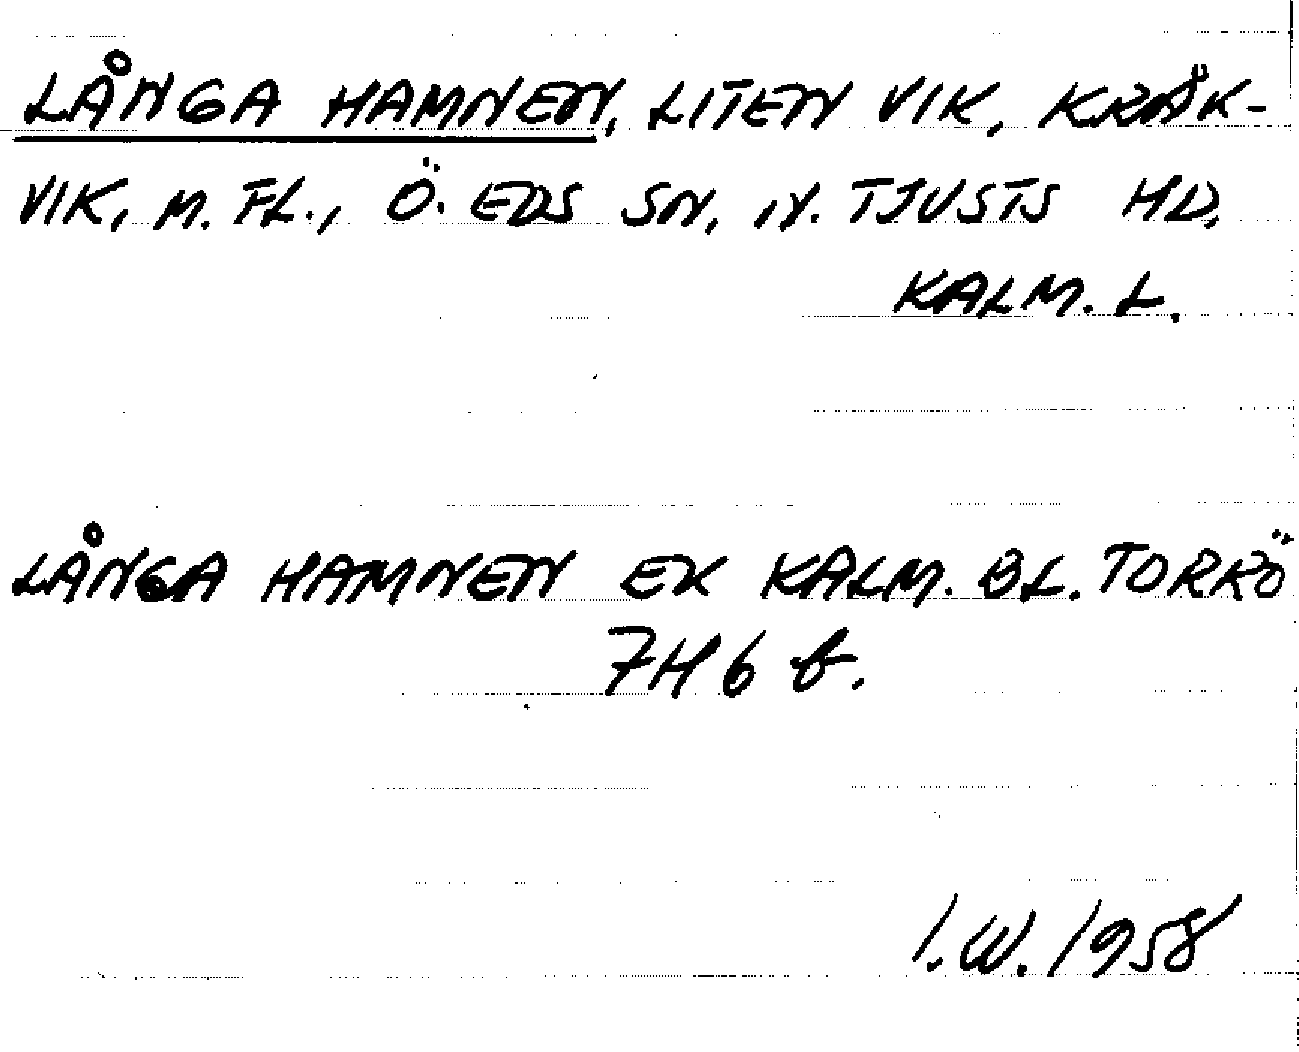 LÅNGA HAMNEN, LITEN VIK, KRÅK-
VIK, M. FL., Ö. EDS SN, N. TJUSTS HD,
KALM. L.
LÅNGA HAMNEN EK KALM. BL. TORRÖ
7H6 b.
I.W. 1958